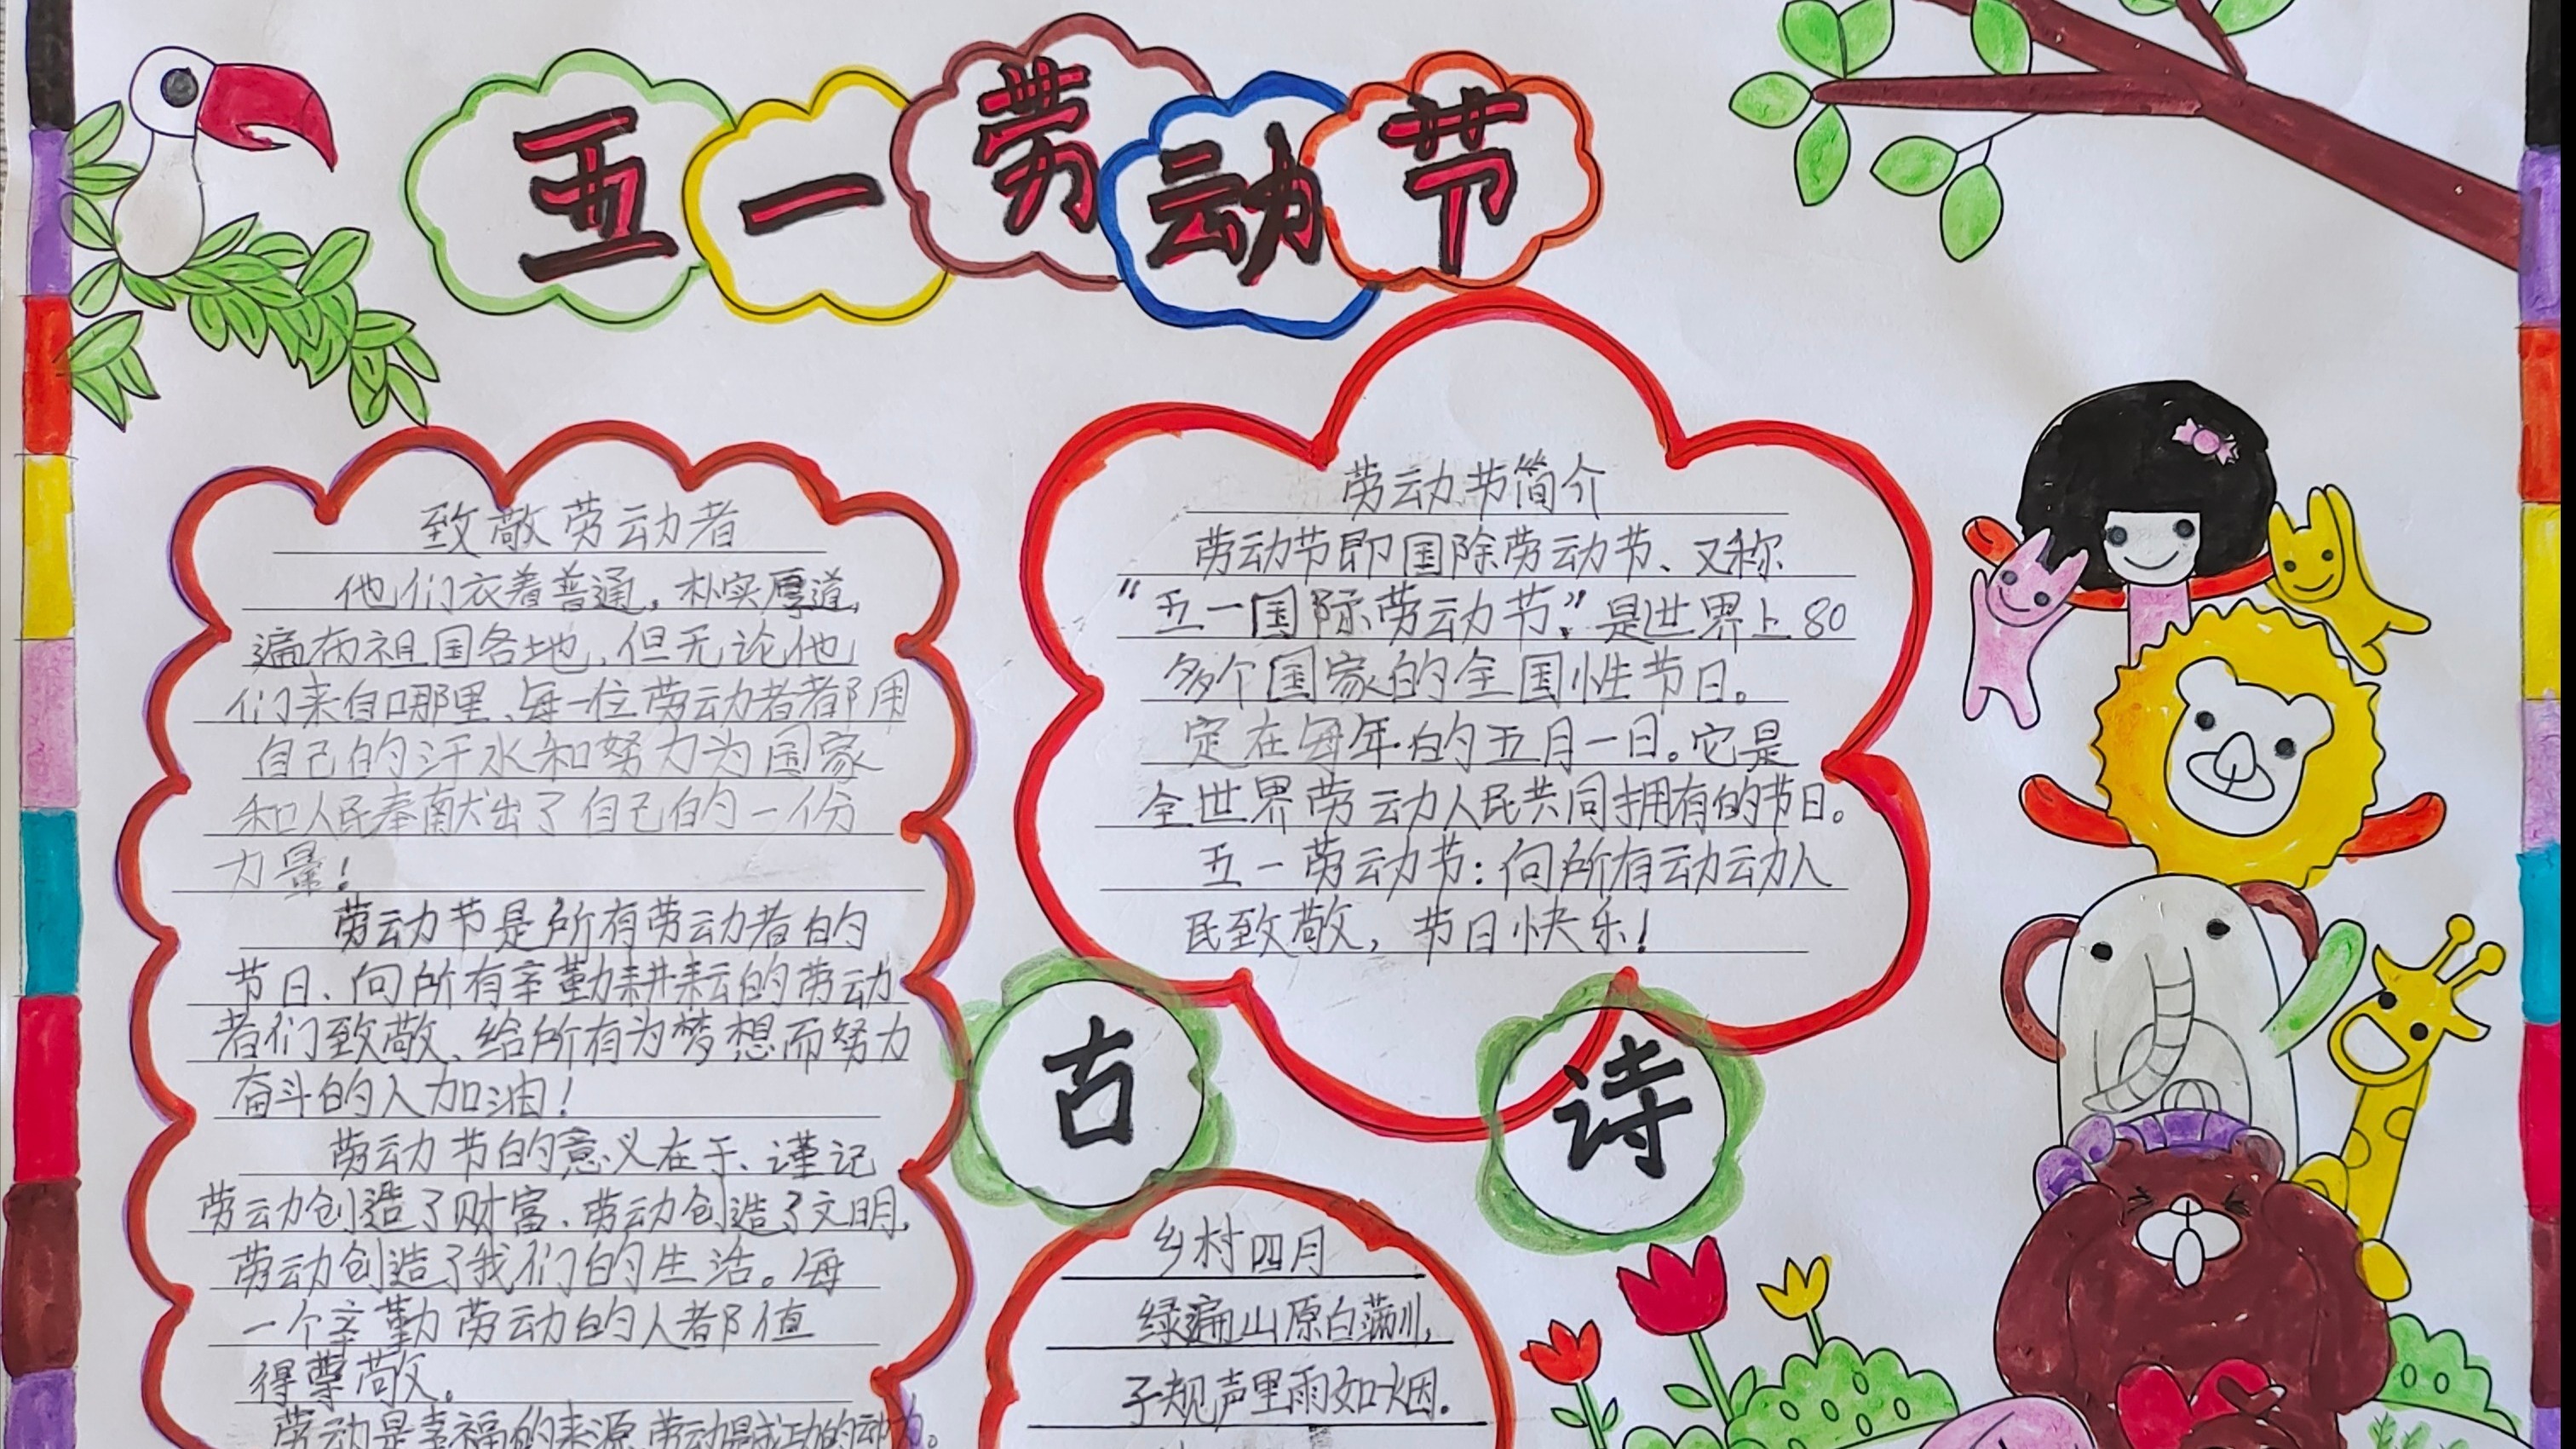 五一劳动节
致敬劳动者
他们衣着普通，朴实厚道，
遍布祖国各地，但无论他
们来自哪里、每一位劳动者都用
自己的汗水和努力为国家
和人民奉献出了自己的一份
力量！
劳动节是所有劳动者的
节日、向所有辛勤耕耘的劳动
者们致敬、给所有为梦想而努力
奋斗的人加油！
劳动节的意义在于、谨记
劳动创造了财富、劳动创造了文明，
劳动创造了我们的生活。每
一个辛勤劳动的人都值
得尊敬。
劳动是幸福的来源，劳动是成功的动力。
劳动节简介
劳动节即国际劳动节、又称
“五一国际劳动节”是世界上80
多个国家的全国性节日。
定在每年的五月一日。它是
全世界劳动人民共同拥有的节日。
五一劳动节：向所有动动人
民致敬，节日快乐！
古诗
乡村四月
绿遍山原白满川，
子规声里雨如烟.